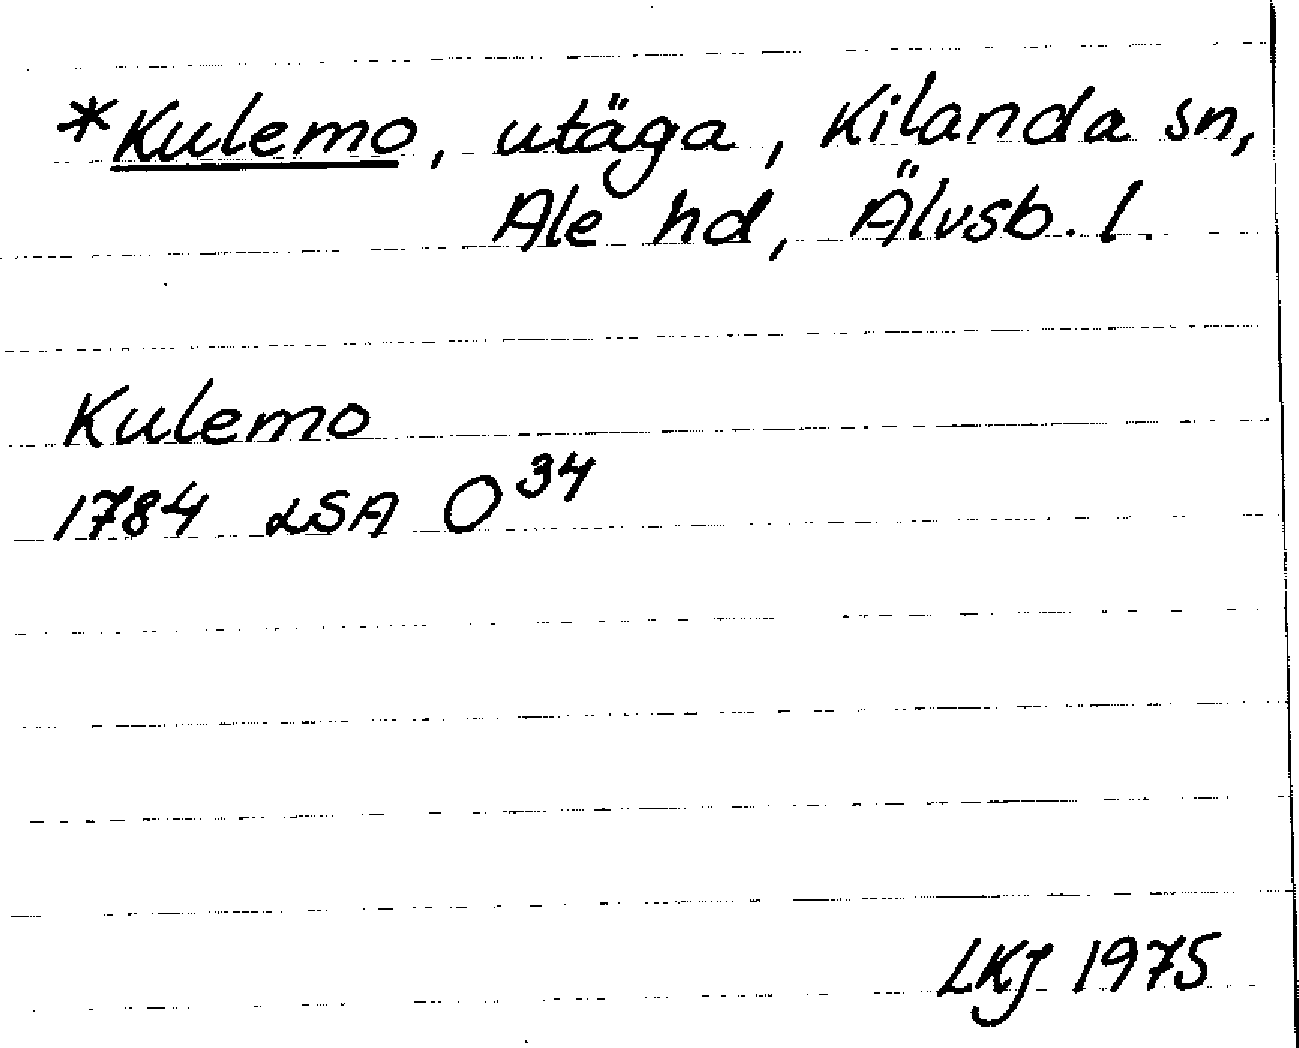 *Kulemo, utäga, Kilanda sn,
Ale hd, Älvsb. l.
Kulemo
1784 LSA O³⁴
LKJ 1975